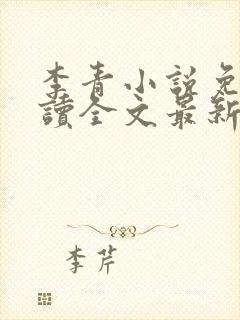 李青小說免
讀全文最新
李芹